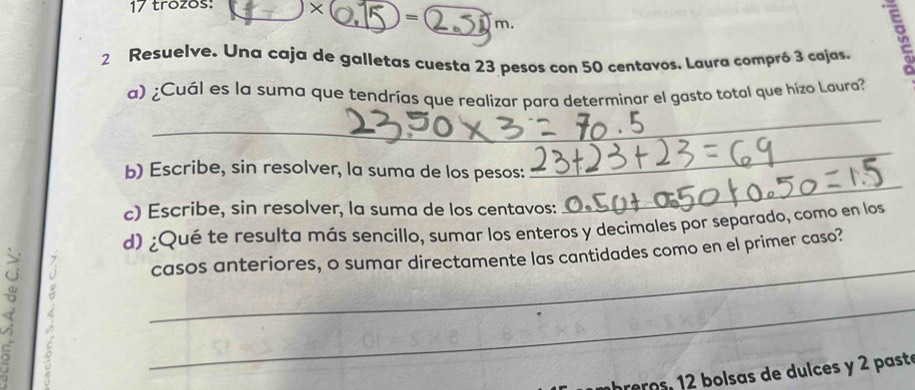 17 trozos: × 0.15 = 2.55 m.
2 Resuelve. Una caja de galletas cuesta 23 pesos con 50 centavos. Laura compró 3 cajas.
a) ¿Cuál es la suma que tendrías que realizar para determinar el gasto total que hizo Laura?
23.50 × 3 = 70.5
b) Escribe, sin resolver, la suma de los pesos: 23+23+23=69
c) Escribe, sin resolver, la suma de los centavos: 0.50+0.50+0.50=1.5
d) ¿Qué te resulta más sencillo, sumar los enteros y decimales por separado, como en los
casos anteriores, o sumar directamente las cantidades como en el primer caso?
12 bolsas de dulces y 2 paste
S.A. de C.V.